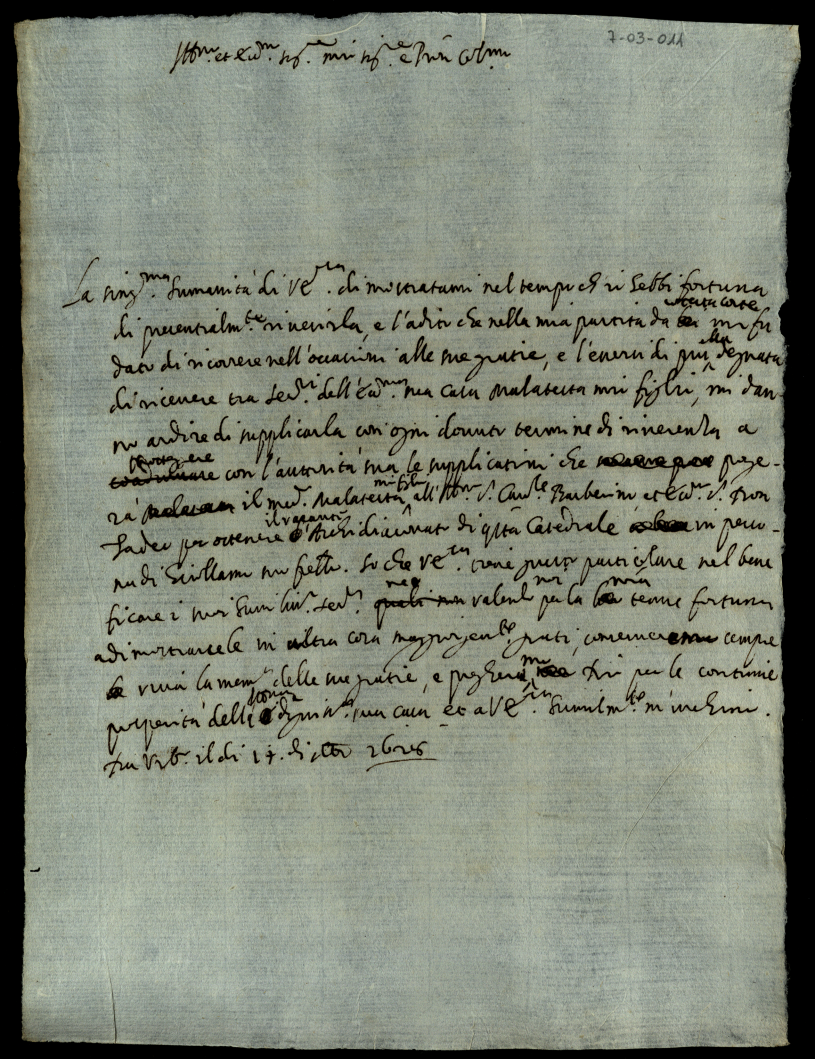 7-03-011
Ill.mo et Ecc.mo Sig.re mio Sig.re e Pron Col.mo
La sing.ma humanità di V E.za dimostratami nel tempo ch' io hebbi fortuna
di presentialm.te riverirla, e l'adito che nella mia partita da cotesta corte mi fu
dato di ricorrere nell'occasioni alle sue gratie, e l'esersi di più ella degnata
di ricevere tra ser.ri dell'Ecc.ma sua Casa Malatesta mio figlio, mi dan-
no ardire di supplicarla con ogni dovuto termine di riverenza a
con l'autorità sua le supplicationi che porge-
rà il med.o Malatesta mio figlio all' Ill.mo S. Card.le Barberini et Ecc.mo S. Don
Tadeo per ottenere il vacante Archidiaconato di q.sta Catedrale in perso-
na di Girollamo suo frello. So che V E.za tiene gusto particolare nel bene
ficare i suoi humiliss. ser.ri ne valendo noi per la nostra tenue fortuna
a dimostrarcele in altra cosa maggiormente grati, conserveremo sempre
viva la mem.a delle sue gratie, e pregheremo Dio per le continue
prosperità della sua Casa et a V E.za humilm.te m'inchino.
Da Urb.o il di 17. di 1626